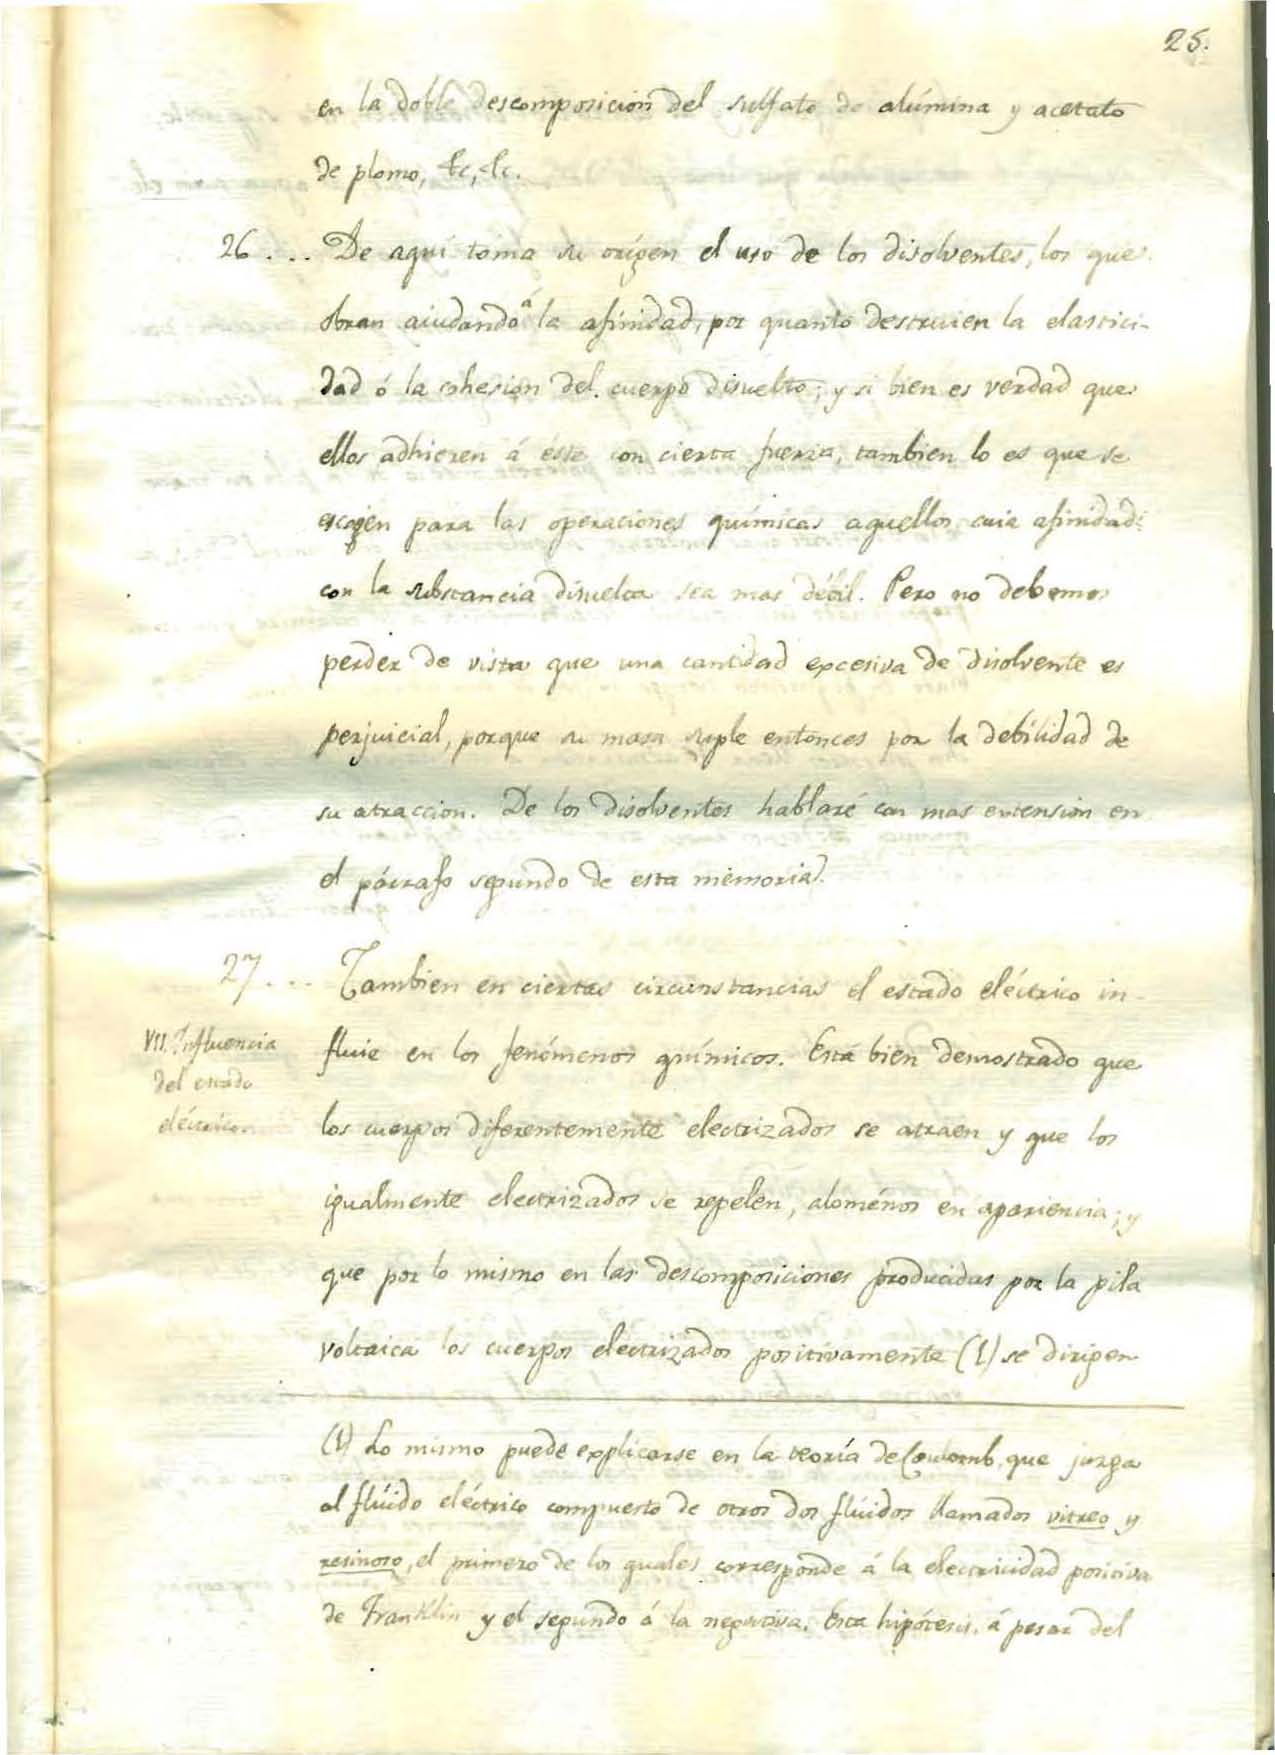 25.
en la doble descomposicion del sulfato de alúmina y acetato
de plomo, &c, &c.
26 . . . De aquí toma su orígen el uso de los disolventes, los que
obran aiudando á la afinidad, por quanto destruien la elastici-
dad ó la cohesion del cuerpo disuelto; y si bien es verdad que
ellos adhieren á éste con cierta fuerza, tambien lo es que se
escojen para las operaciones químicas aquellos cuia afinidad
con la substancia disuelta sea mas débil. Pero no debemos
perder de vista que una cantidad excesiva de disolvente es
perjuicial, porque su masa suple entonces por la debilidad de
su atraccion. De los disolventes hablaré con mas extension en
el párrafo segundo de esta memoria.
27 . . . Tambien en ciertas circunstancias el estado eléctrico in-
VII. Influencia
del estado
eléctrico
fluie en los fenómenos químicos. Está bien demostrado que
los cuerpos diferentemente electrizados se atraen y que los
igualmente electrizados se repelen, aloménos en apariencia; y
que por lo mismo en las descomposiciones producidas por la pila
voltaica los cuerpos electrizados positivamente (1) se dirigen
(1) Lo mismo puede explicarse en la teoría de Coulomb, que juzga
al flúido eléctrico compuesto de otros dos flúidos llamados vitreo y
resinoso, el primero de los quales corresponde á la electricidad positiva
de Franklin y el segundo á la negativa. Esta hipótesis, á pesar del